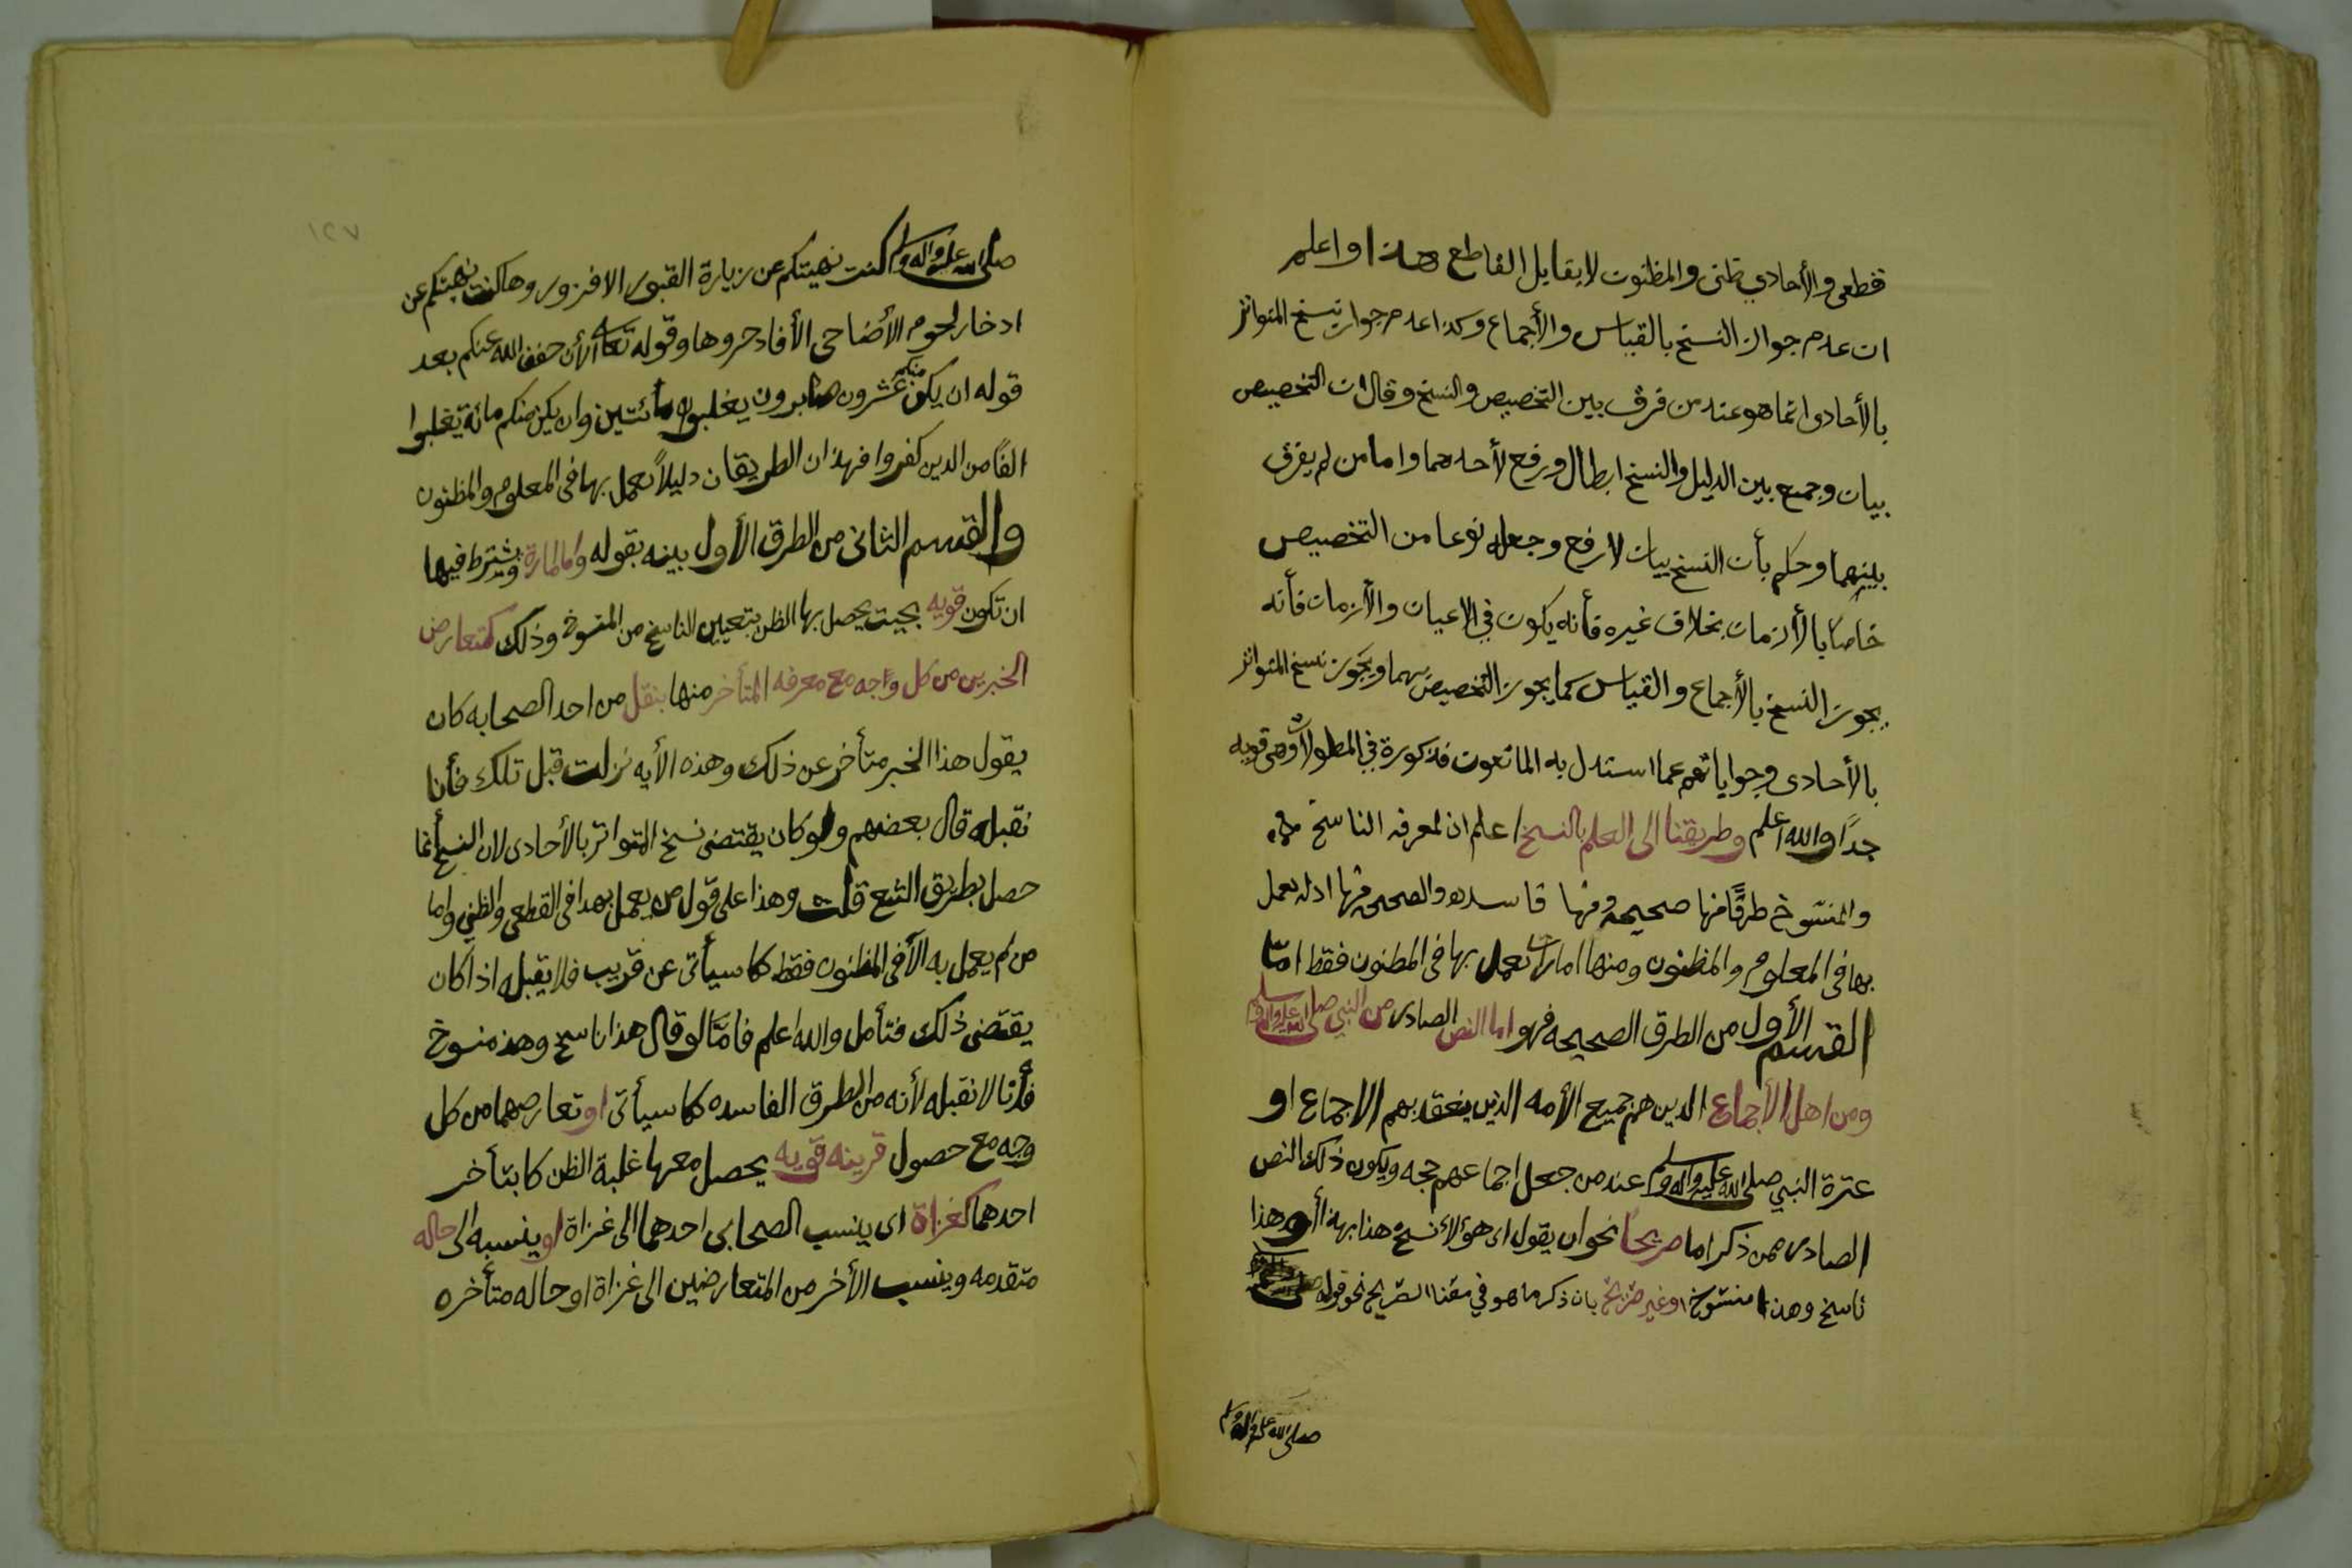 قطعي والأحادي ظنى والمظنون لايقابل القاطع هذا واعلم
ان عدم جواز النسخ بالقياس والأجماع وكذا عدم جواز نسخ المتواتر
بالأحادى انما هو عند من فرق بين التخصيص والنسخ وقال ان التخصيص
بيان وجمع بين الدليل والنسخ ابطال ورفع لأحدهما واما من لم يفرق
بينهما وحكم بأن النسخ بيان لا رفع وجعله نوعا من التخصيص
خاصًا بالأزمان بخلاف غيره فأنه يكون في الاعيان والأزمان فأنه
يجوز النسخ بالأجماع والقياس كما يجوز التخصيص بهما ويجوز نسخ المتواتر
بالأحادى وجواباتهم عما استدل به المانعون مذكورة في المطولات وهى قويه
جدًا والله اعلم وطريقنا الى العلم بالنسخ اعلم ان لمعرفه الناسخ
والمنسوخ طرقًا منها صحيحه ومنها فاسده والصحيحه منها ادله يعمل
بها فى المعلوم والمظنون ومنها امارات يعمل بها فى المظنون فقط امّا
القسم الأول من الطرق الصحيحه فهو اما النص الصادر من النبي صلى الله عليه واله وسلم
ومن اهل الأجماع الدين هم جميع الأمه الذين ينعقد بهم الاجماع او
عترة النبي صلى الله عليه واله وسلم عند من جعل اجماعهم حجه ويكون ذلك النص
الصادر ممن ذكر اما صريحًا نحو ان يقول اى هؤلاء نسخ هذا بهذا أو هذا
ناسخ وهذا منسوخ او غير صريح بان ذكر ما هو في معنا الصريح نحو قوله
صلى الله عليه واله وسلم
١٢٧
صلى الله عليه واله وسلم كنت نهيتكم عن زيارة القبور الا فزوروها كنت نهيتكم عن
ادخار لحوم الأضاحى الأفادخروها وقوله تعالى الأن خفف الله عنكم بعد
قوله ان يكن منكم عشرون صابرون يغلبوا مائتين وان يكن منكم مائة يغلبوا
الفًا من الدين كفروا فهذان الطريقان دليلاً يعمل بها فى المعلوم والمظنون
والقسم الثانى من الطرق الأول بينه بقوله واما امارة ويشترط فيها
ان تكون قويه بحيث يحصل بها الظن بتعيين الناسخ من المنسوخ وذلك كتعارض
الخبرين من كل وجه مع معرفه المتأخر منها بنقل من احد الصحابه كان
يقول هذا الخبر متأخر عن ذلك وهذه الأيه نزلت قبل تلك فأنا
نقبله قال بعضهم ولو كان يقتضى نسخ المتواتر بالأحادى لان النسخ أنما
حصل بطريق التبع قلت وهذا على قول من يعمل بهدا فى القطعى والظنى واما
من لم يعمل به الآ فى المظنون فقط كما سيأتى عن قريب فلا يقبله اذا كان
يقتضى ذلك فتأمل والله اعلم فامّا لو قال هذا ناسخ وهذ منسوخ
فأنا لا نقبله لأنه من الطرق الفاسده كما سيأتى او تعارضهما من كل
وجه مع حصول قرينه قويه يحصل معها غلبة الظن كا بتأخر
احدهما كغزاة اى ينسب الصحابى احدهما الى غزاة او ينسبه الى حاله
متقدمه وينسب الأخر من المتعارضين الى غزاة او حاله متأخره